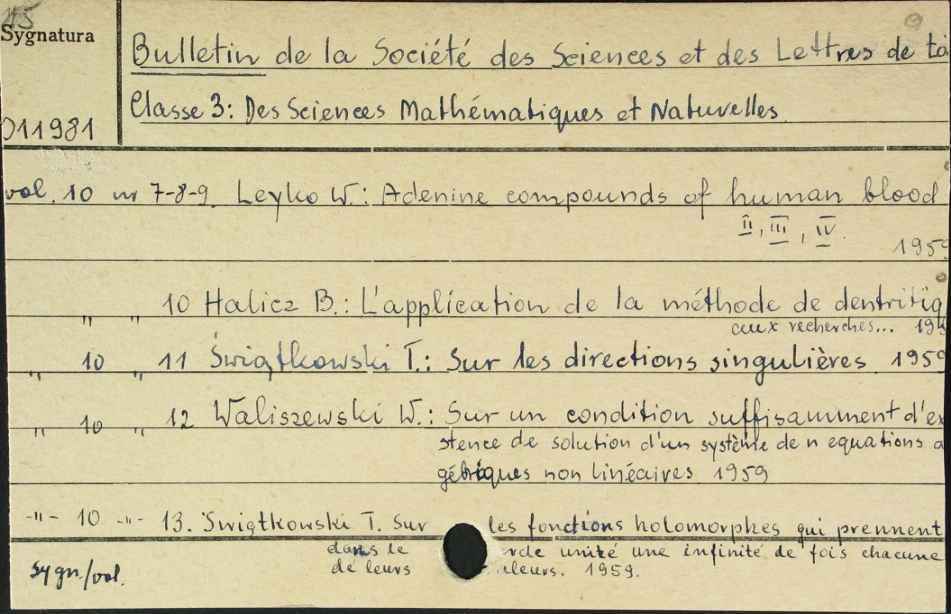 Sygnatura
Bulletin de la Société des Sciences et des Lettres de
Classe 3: Des Sciences Mathématiques et Naturelles
011981
vol. 10 nr 7-8-9. Leyko W.: Adenine compounds of human blood
II, III, IV.
1959
" " 10 Halicz B.: L'application de la méthode de dentritiq
aux recherches...
" 10 " 11 Świątkowski T.: Sur les directions singulières 1959
" 10 " 12 Waliszewski W.: Sur un condition suffisamment d'exi
stence de solution d'un système de n equations a
gébriques non linéaires 1959
-"- 10 -"- 13. Świątkowski T. Sur les fonctions holomorphes qui prennent
dans le unité une infinité de fois chacune
de leurs 1959.
sygn./vol.